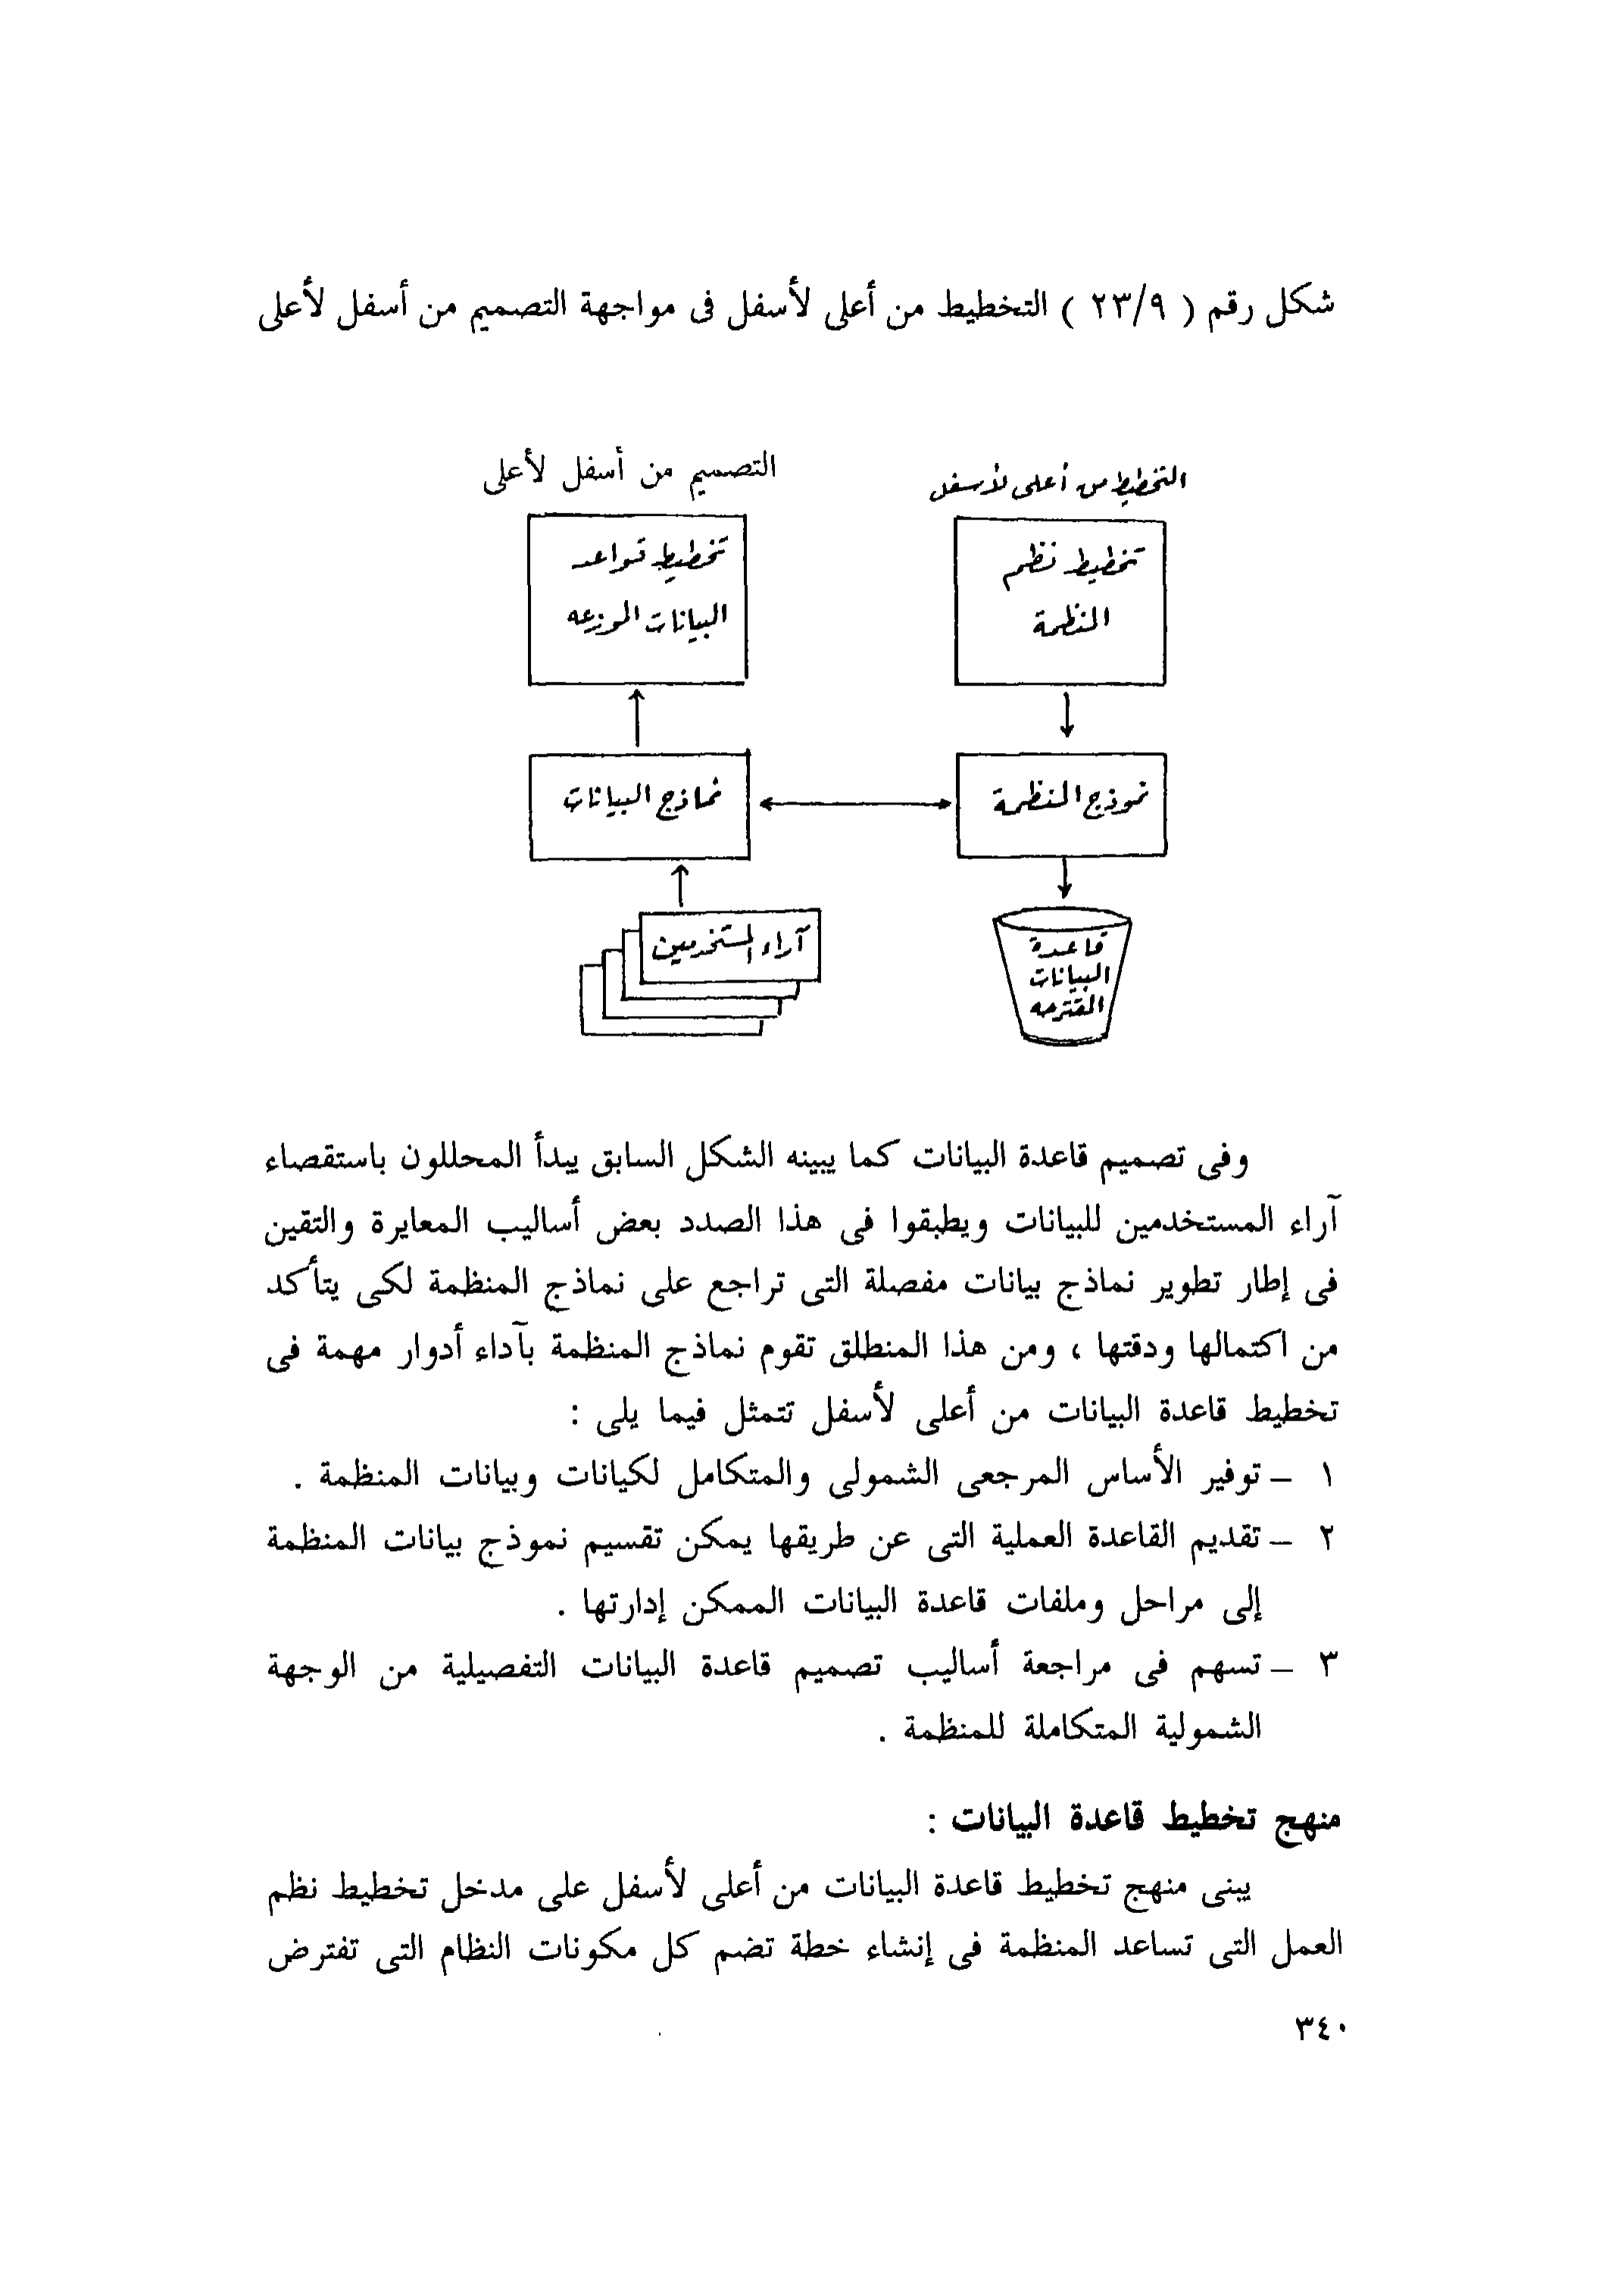 شكل رقم ( ٢٣/٩ ) التخطيط من أعلى لأسفل فى مواجهة التصميم من أسفل لأعلى
التخطيط من أعلى لأسفل
التصميم من أسفل لأعلى
تخطيط نظم
المنظمة
تخطيط قواعد
البيانات الموزعه
نموذج المنظمة
نماذج البيانات
آراء المستخدمين
قاعدة
البيانات
المقترحه
وفى تصميم قاعدة البيانات كما يبينه الشكل السابق يبدأ المحللون باستقصاء
آراء المستخدمين للبيانات ويطبقوا فى هذا الصدد بعض أساليب المعايرة والتقين
فى إطار تطوير نماذج بيانات مفصلة التى تراجع على نماذج المنظمة لكى يتأكد
من اكتمالها ودقتها ، ومن هذا المنطلق تقوم نماذج المنظمة بآداء أدوار مهمة فى
تخطيط قاعدة البيانات من أعلى لأسفل تتمثل فيما يلى :
١ – توفير الأساس المرجعى الشمولى والمتكامل لكيانات وبيانات المنظمة .
٢ – تقديم القاعدة العملية التى عن طريقها يمكن تقسيم نموذج بيانات المنظمة
إلى مراحل وملفات قاعدة البيانات الممكن إدارتها .
٣ – تسهم فى مراجعة أساليب تصميم قاعدة البيانات التفصيلية من الوجهة
الشمولية المتكاملة للمنظمة .
منهج تخطيط قاعدة البيانات :
يبنى منهج تخطيط قاعدة البيانات من أعلى لأسفل على مدخل تخطيط نظم
العمل التى تساعد المنظمة فى إنشاء خطة تضم كل مكونات النظام التى تفترض
٣٤٠